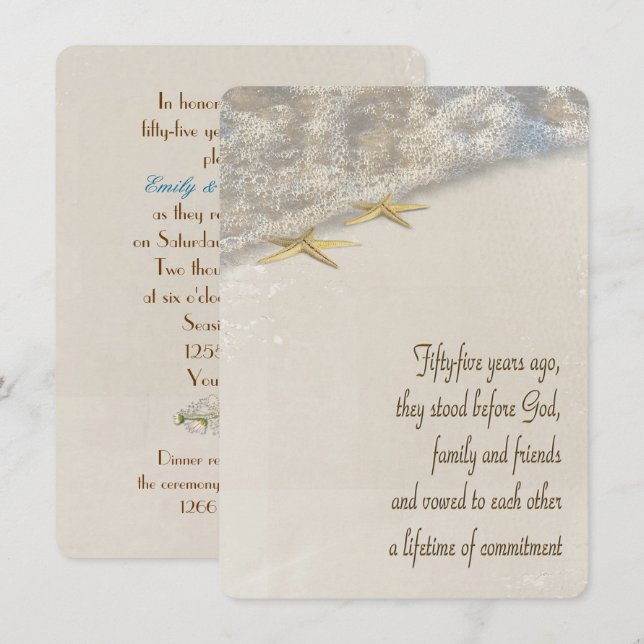 In honor
fifty-five ye
ple
Emily &
as they re
on Saturday
Two thou
at six o'clo
Seasi
1255
You
Dinner re
the ceremony
1266
Fifty-five years ago,
they stood before God,
family and friends
and vowed to each other
a lifetime of commitment